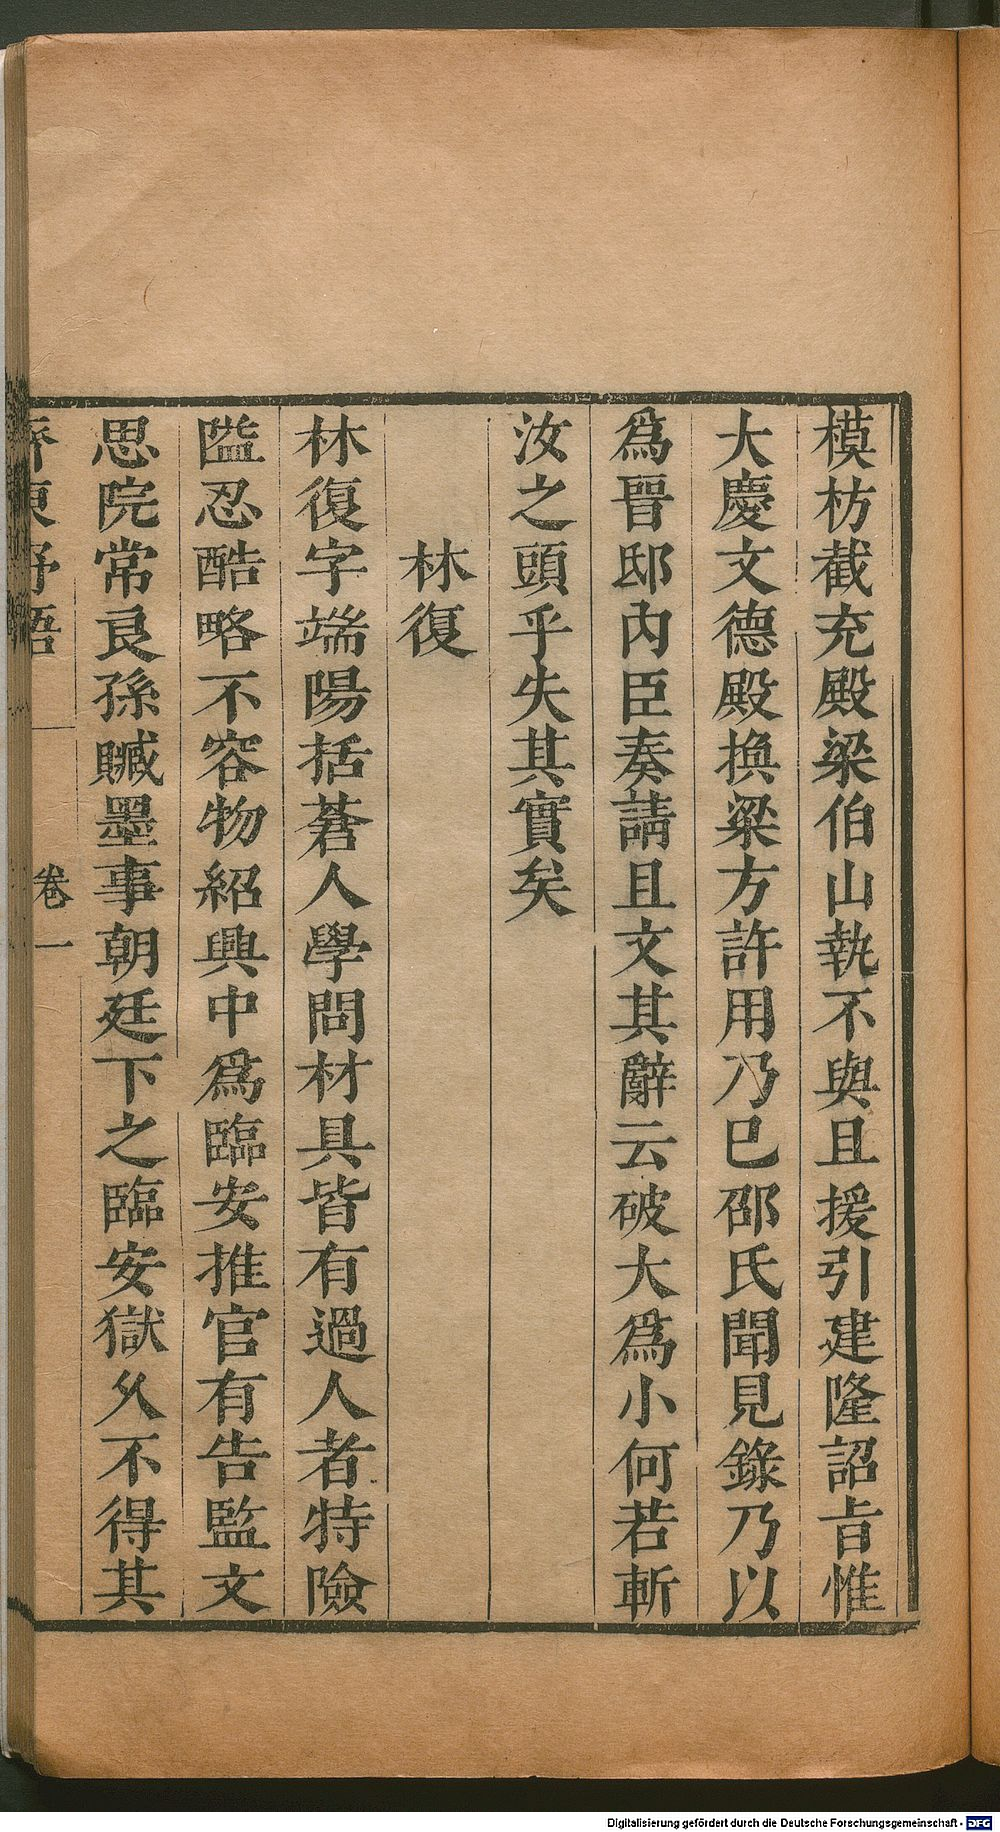 模枋截充殿梁伯山執不與且援引建隆詔旨惟
大慶文德殿換梁方許用乃已邵氏聞見錄乃以
爲晉邸內臣奏請且文其辭云破大爲小何若斬
汝之頭乎失其實矣
林復
林復字端陽括蒼人學問材具皆有過人者特險
隘忍酷略不容物紹興中爲臨安推官有告監文
思院常良孫贓墨事朝廷下之臨安獄久不得其
齊東野語 卷一
Digitalisierung gefördert durch die Deutsche Forschungsgemeinschaft - DFG